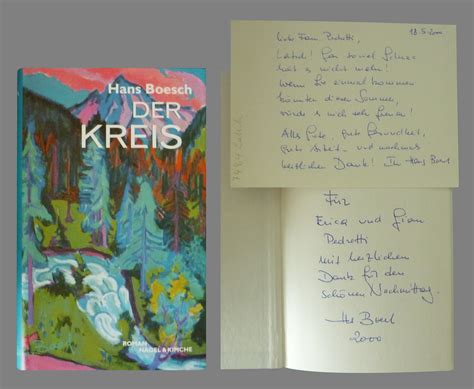 Hans Boesch
DER
KREIS
ROMAN
NAGEL & KIMCHE
18.5.2000
Liebe Frau Pedretti,
mich mehr!
Wenn Sie einmal kommen
könnten diesen Sommer,
würde mich sehr freuen!
Alles Gute, gute Gesundheit,
gute Arbeit – und nochmals
herzlichen Dank! Ihr Hans Boesch
Für
Erica und Gian
Pedretti
mit herzlichem
Dank für den
schönen Nachmittag.
Hs Boesch
2000